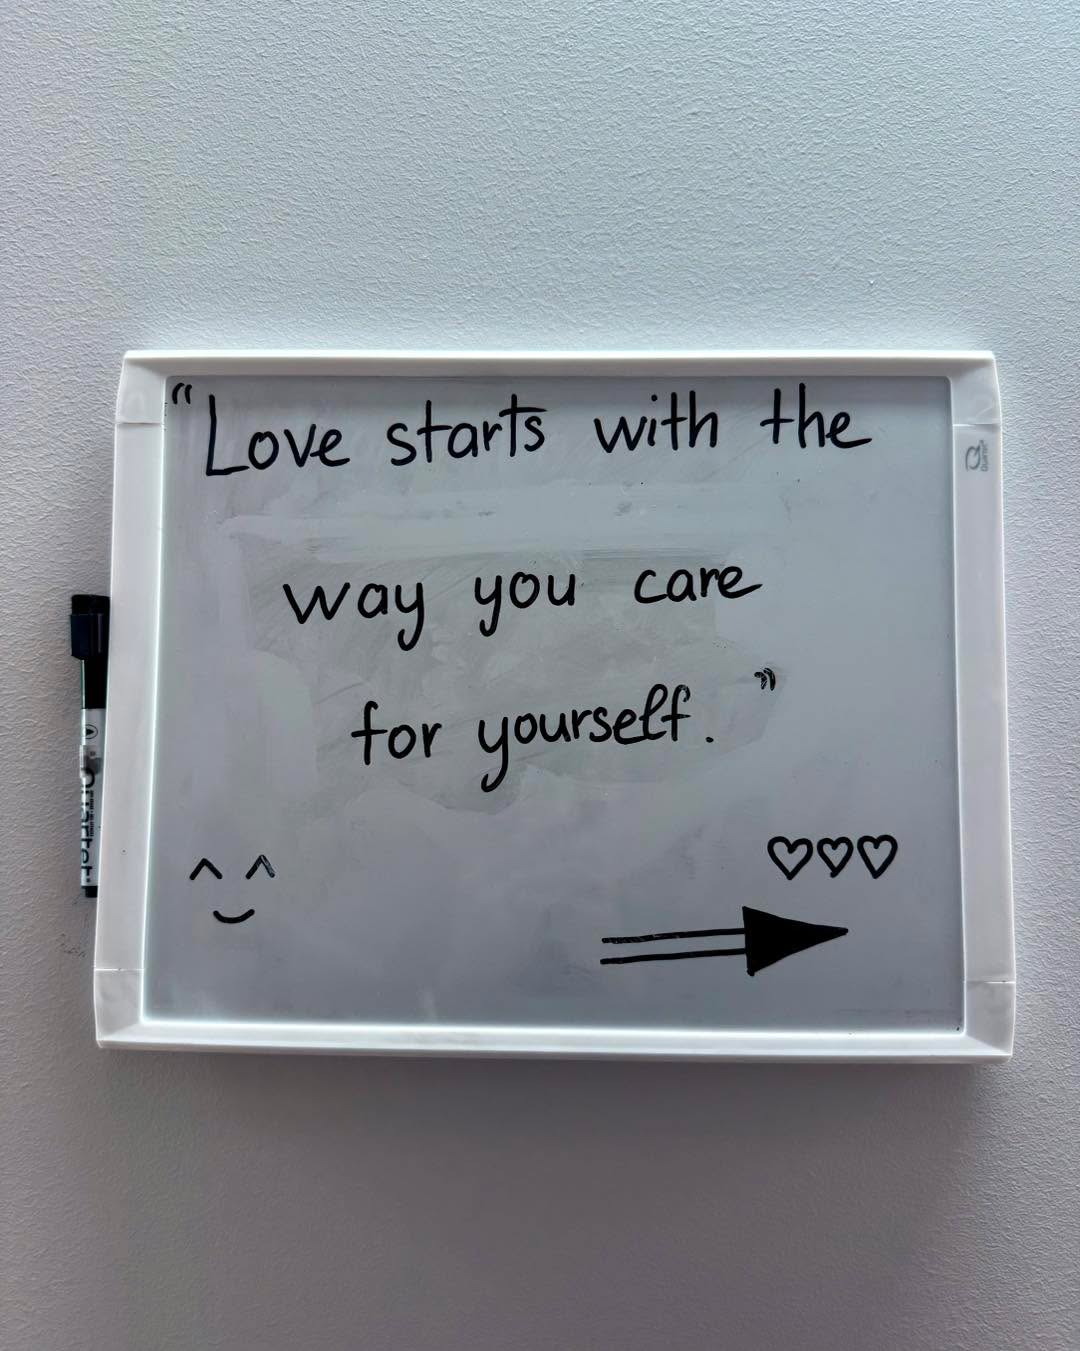 “Love starts with the
way you care
for yourself.”
Quartet
Quartet